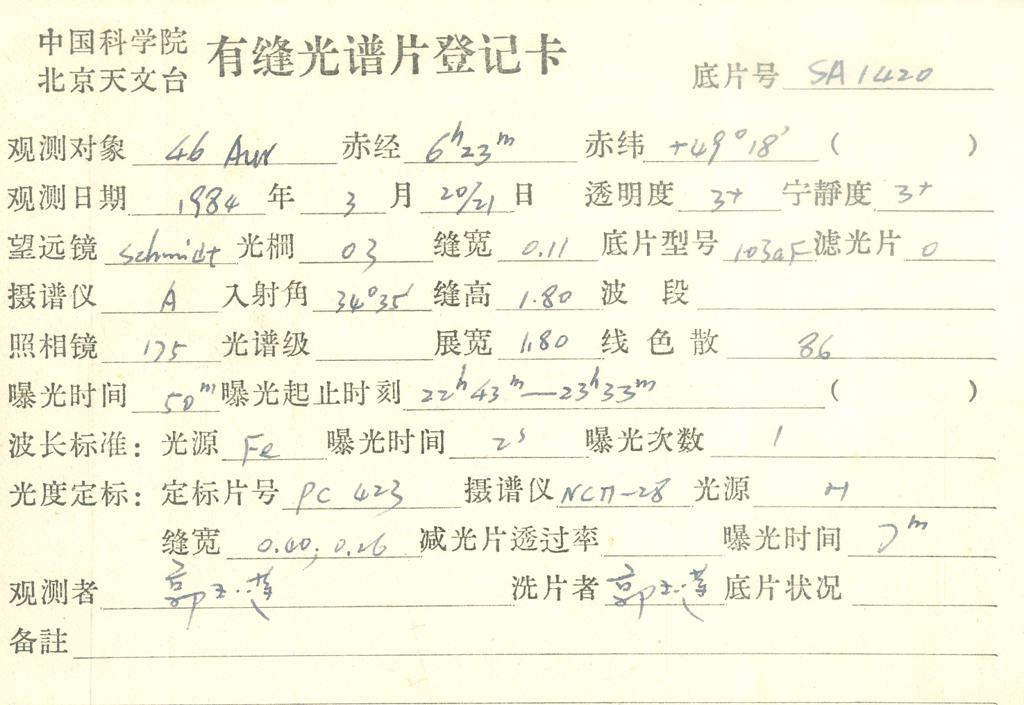 中国科学院
北京天文台 有缝光谱片登记卡 底片号 SA 1420
观测对象 46 Aur 赤经 6h23m 赤纬 +49°18′ ( )
观测日期 1984 年 3 月 20/21 日 透明度 3+ 宁静度 3+
望远镜 Schmidt 光栅 03 缝宽 0.11 底片型号 103aF 滤光片 0
摄谱仪 A 入射角 34°35′ 缝高 1.80 波段
照相镜 175 光谱级 展宽 1.80 线色散 86
曝光时间 50m 曝光起止时刻 22h43m—23h33m ( )
波长标准: 光源 Fe 曝光时间 2s 曝光次数 1
光度定标: 定标片号 PC 423 摄谱仪 ИСП-28 光源 H
缝宽 0.40; 0.26 减光片透过率 曝光时间 7m
观测者 郭玉莲 洗片者 郭玉莲 底片状况
备註